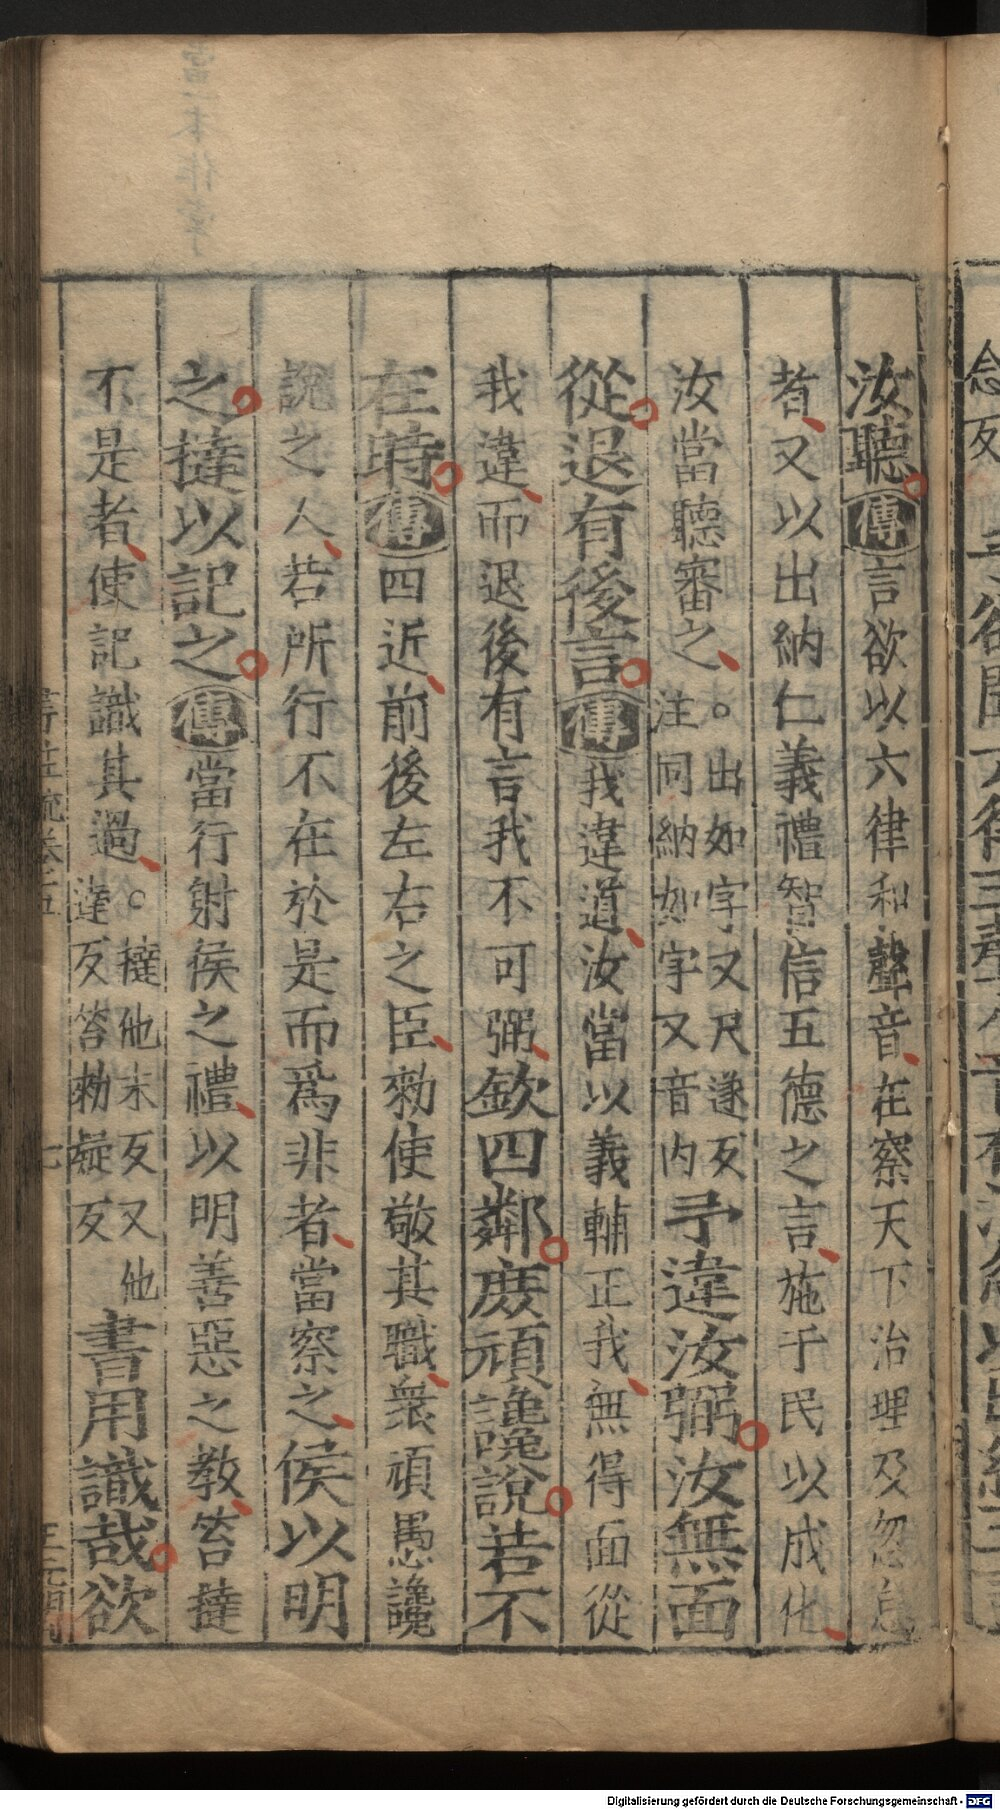 汝聽傳言欲以六律和聲音在察天下治理及忽怠
者又以出納仁義禮智信五德之言施于民以成化
汝當聽審之。出如字又尺遂反注同納如字又音內予違汝弼汝無面
從退有後言傳我違道汝當以義輔正我無得面從
我違而退後有言我不可弼欽四鄰庶頑讒說若不
在時傳四近前後左右之臣勑使敬其職衆頑愚讒
說之人若所行不在於是而爲非者當察之侯以明
之撻以記之傳當行射侯之禮以明善惡之教笞撻
不是者使記識其過。撻他末反又他達反笞勑疑反書用識哉欲
書註疏卷五
七
Digitalisierung gefördert durch die Deutsche Forschungsgemeinschaft - DFG